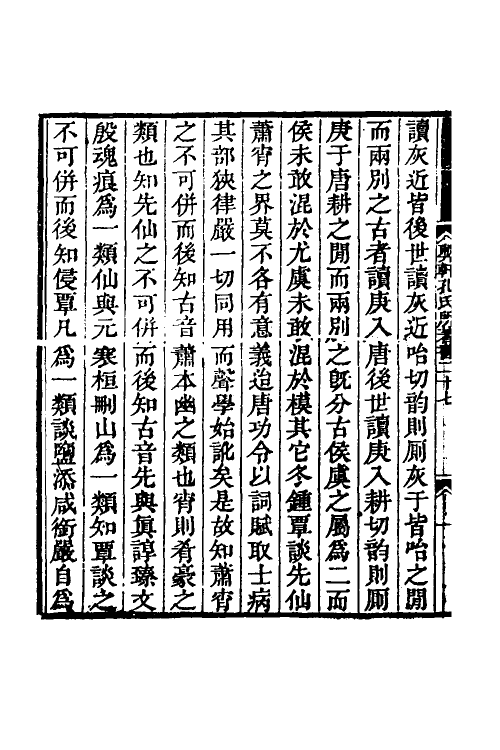 軒孔氏所著書
讀灰近皆後世讀灰近咍切韵則廁灰于皆咍之閒
而兩別之古者讀庚入唐後世讀庚入耕切韵則廁
庚于唐耕之閒而兩別之旣分古侯虞之屬爲二而
侯未敢混於尤虞未敢混於模其它冬鍾覃談先仙
蕭宵之界莫不各有意義迨唐功令以詞賦取士病
其部狹律嚴一切同用而聲學始訛矣是故知蕭宵
之不可併而後知古音蕭本幽之類也宵則肴豪之
類也知先仙之不可併而後知古音先與眞諄臻文
殷魂痕爲一類仙與元寒桓刪山爲一類知覃談之
不可併而後知侵覃凡爲一類談鹽添咸銜嚴自爲